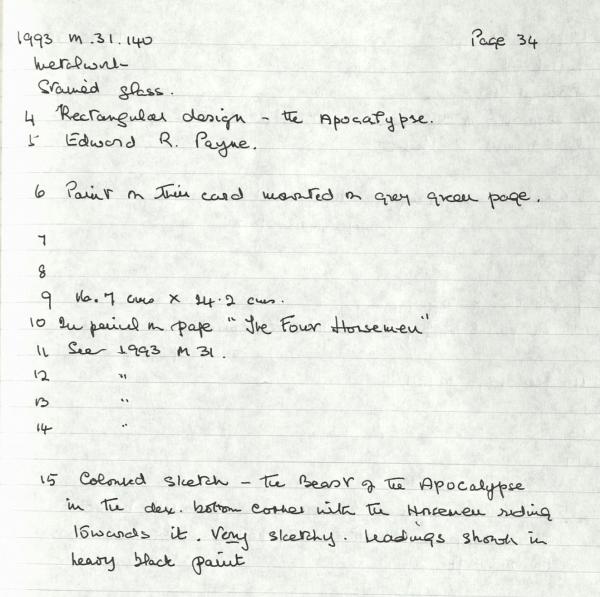 1993 M.31.140 Page 34
Metalwork
Stained glass.
4 Rectangular design - the Apocalypse.
5 Edward R. Payne.
6 Paint on thin card mounted on grey green page.
7
8
9 10.7 cms x 24.2 cms.
10 In pencil on page "The Four Horsemen"
11 See 1993 M 31.
12 "
13 "
14 "
15 Coloured sketch - the Beast of the Apocalypse
in the dex. bottom corner with the Horsemen riding
towards it. Very sketchy. Leadings shown in
heavy black paint